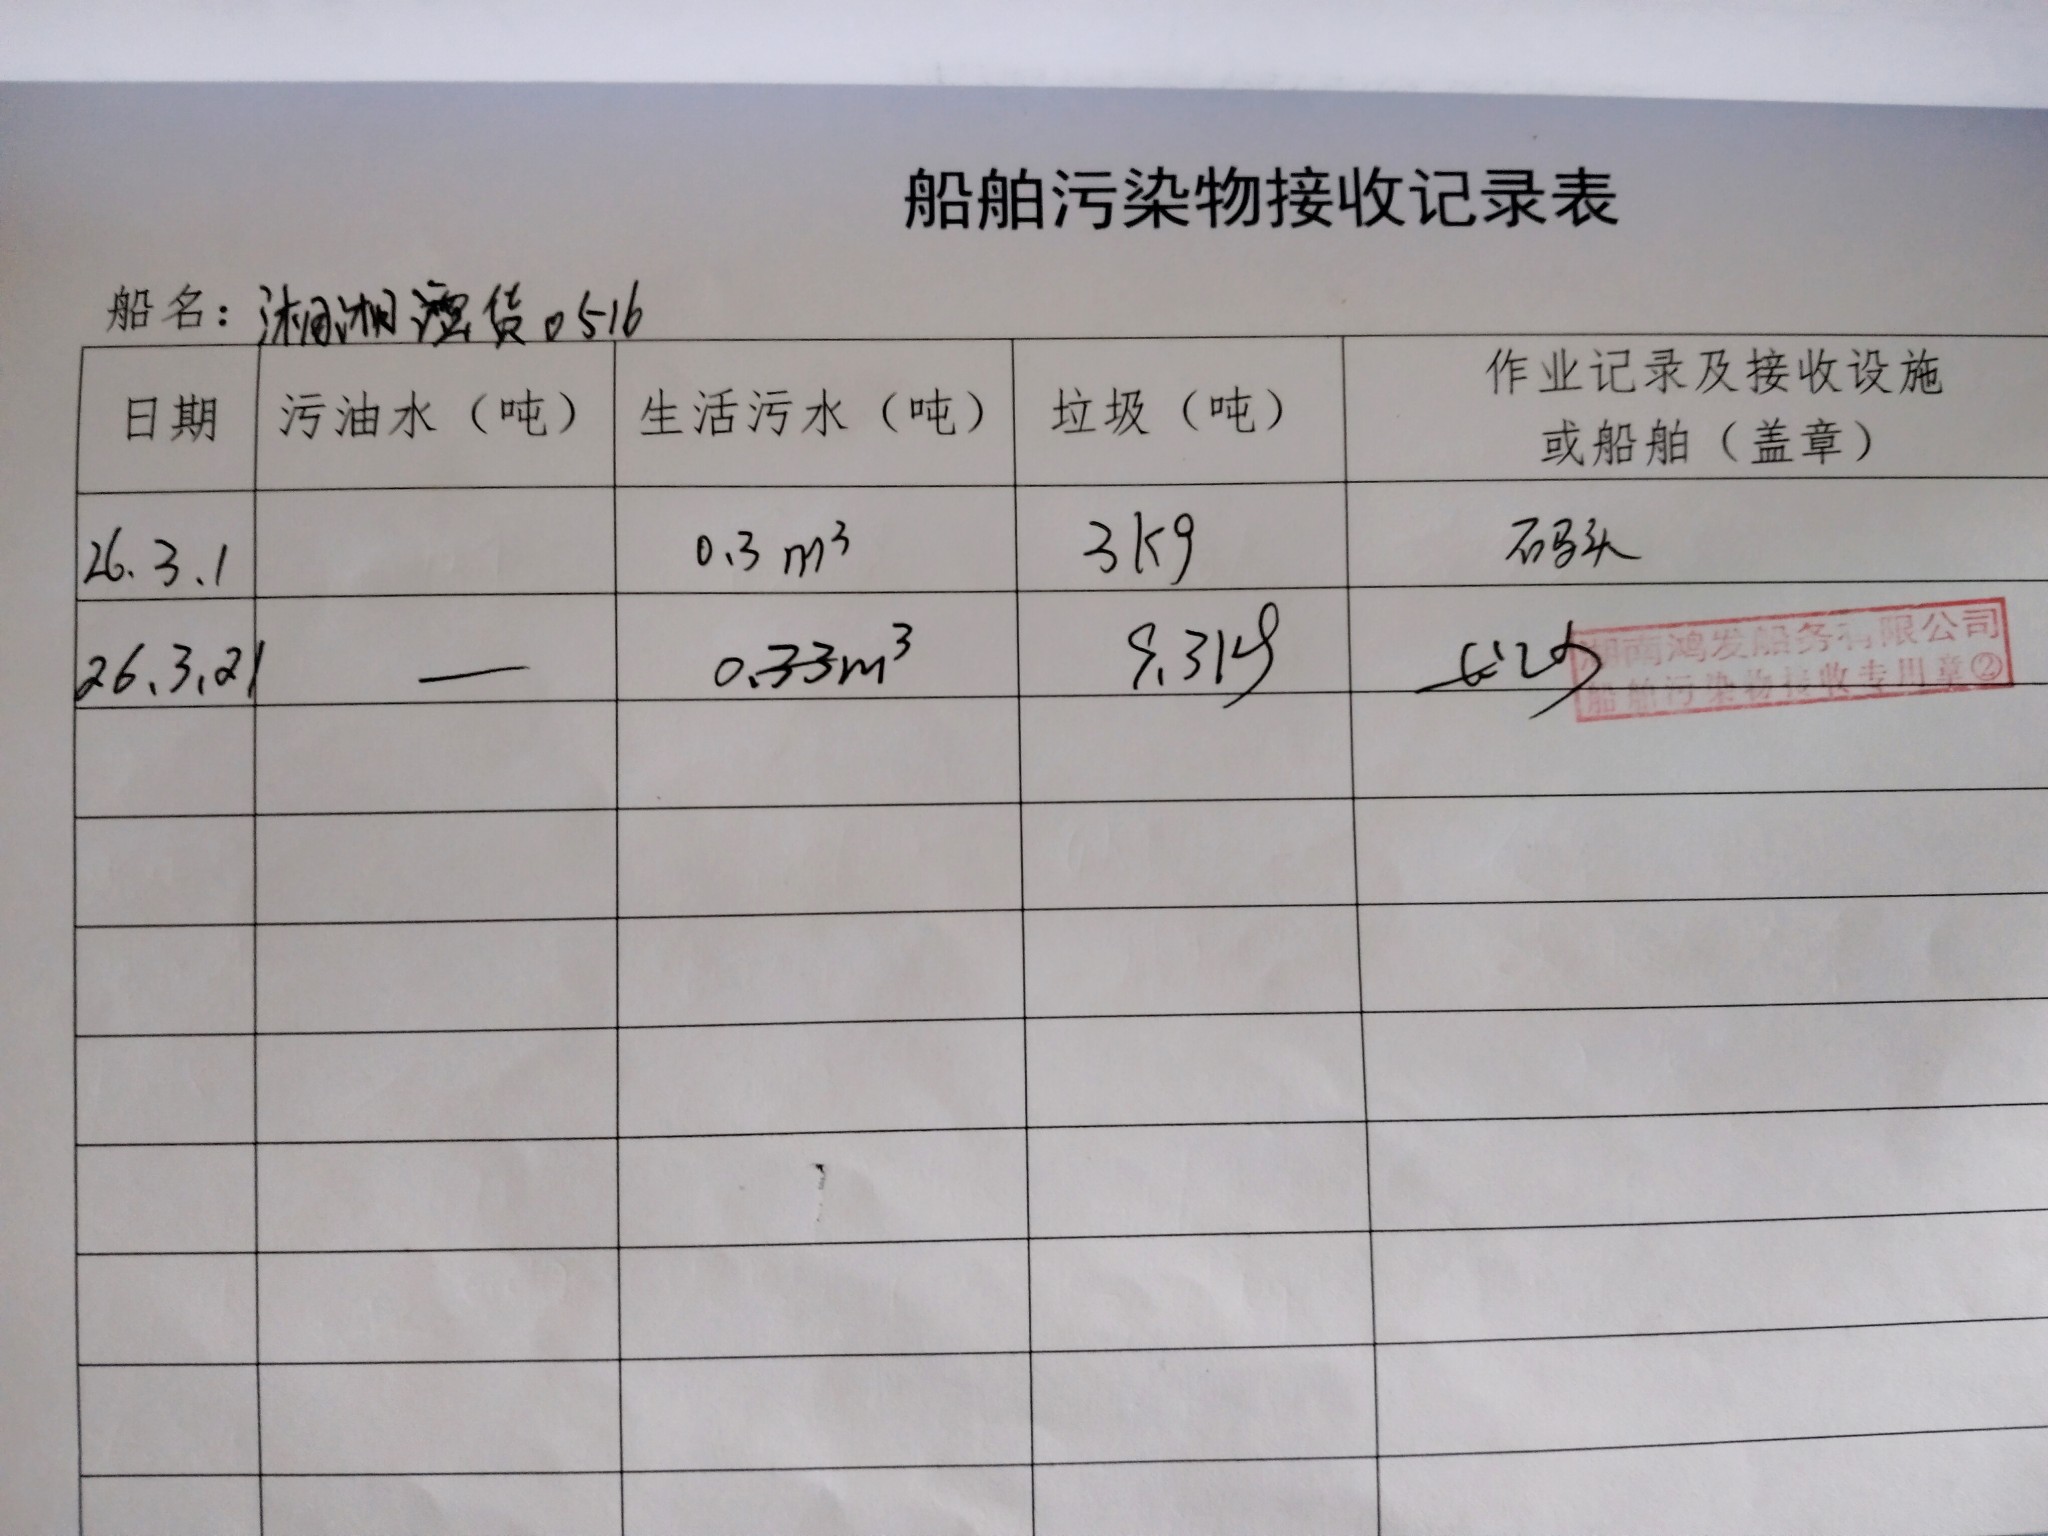 船舶污染物接收记录表
船名: 湘湘潭货0516
日期 污油水（吨） 生活污水（吨） 垃圾（吨） 作业记录及接收设施
或船舶（盖章）
26.3.1 0.3 m³ 3kg 码头
26.3.21 — 0.33m³ 9.3kg 长沙
湖南鸿发船务有限公司
船舶污染物接收专用章②